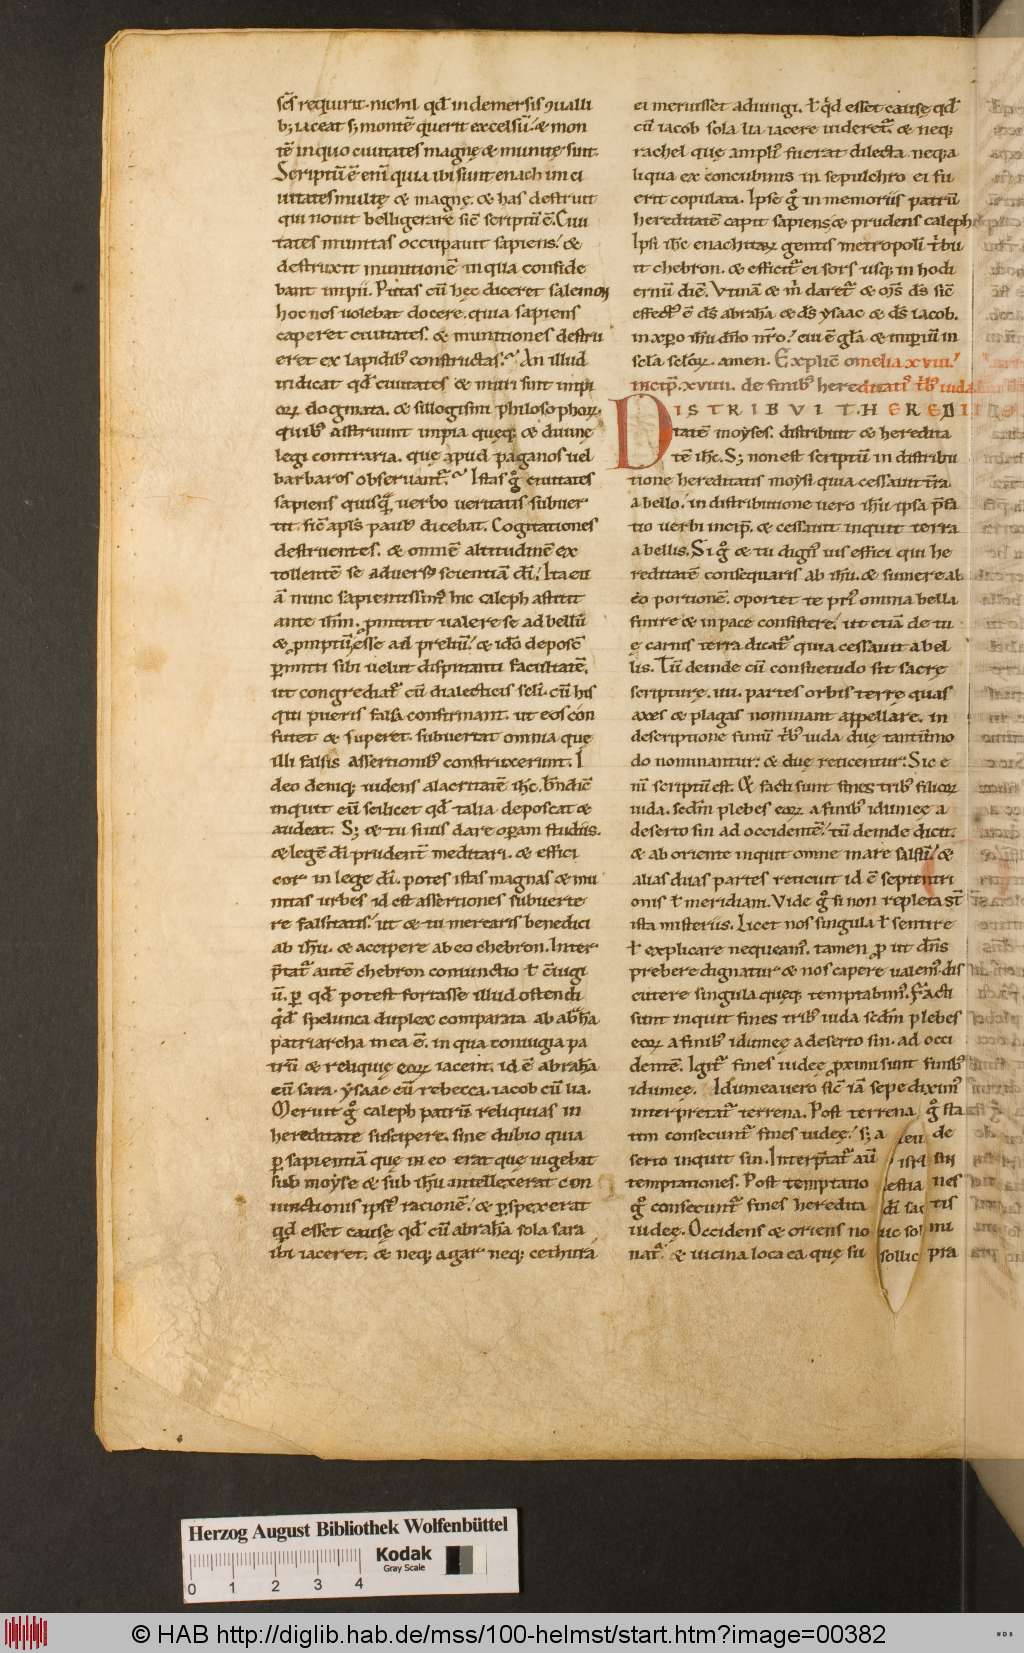 scs requirit. nichil qd in demersis ↄualli
b; iaceat s; montē querit excelsū. & mon
tē in quo ciuitates magnę & munitę sint.
Scriptū ē enī quia ibi sunt enachim ci
uitates multę & magnę. & has destruit
qui nouit belligerare sic̄ scriptū ē. Ciui
tates munitas occupauit sapiens. &
destruxit munitionē in qua confide
bant impii. Putas cū hęc diceret salemon
hoc nos uolebat docere. quia sapiens
caperet ciuitates. & munitiones destru
eret ex lapidib; constructas. An illud
indicat qd ciuitates & muri sint impi
oꝝ dogmata. & sillogismi philosophoꝝ.
quib; astruunt impia quęq; & diuinę
legi contraria. quę apud paganos uel
barbaros obseruant. Istas g° ciuitates
sapiens quisq; uerbo ueritatis subuer
tit. sic̄ apl's paul' dicebat. Cogitationes
destruentes. & omnē altitudinē ex
tollentē se aduers; scientiā dī. Ita eti
ā nunc sapientissim' hic caleph astitit
ante ihm. promittit ualere se ad bellū
& promptū esse ad preliū. & idō deposc̄
pmitti sibi uelut disputanti facultatē.
ut congrediat cū dialecticis scli. cū his
qui pueris falsa confirmant. ut eos con
futet & superet. subuertat omnia quę
illi falsis assertionib; construxerunt. I
deo deniq; uidens alacritatē ihc. bndic̄
inquit eū scilicet qd talia deposcat &
audeat. S; & tu si uis dare operam studiis.
& legē dī prudent meditari. & effici
cor in lege dī. potes istas magnas & mu
nitas urbes id est assertiones subuerte
re falsitatis. ut & tu merearis benedici
ab ihu. & accipere ab eo chebron. Inter
p̄tat autē chebron coniunctio ł c̄iugi
ū. ꝑ qd potest fortasse illud ostendi
qd spelunca duplex comparata ab abrha
patriarcha in ea ē. in qua coniugia pa
trū & reliquię eoꝝ iacent. id ē abraha
cū sara. ysaac cū rebecca. iacob cū lia.
Meruit g° caleph patrū reliquias in
hereditate suscipere. sine dubio quia
ꝑ sapientiā quę in eo erat quę uigebat
sub moyse & sub ihu intellexerat con
iunctionis ipsi' racionē. & ꝑspexerat
qd esset causę qd cū abraha sola sara
ibi iaceret. & neq; agar neq; cethura
ei meruisset adiungi. ł qd esset causę qd
cū iacob sola lia iacere uideret. & neq;
rachel quę ampli' fuerat dilecta. neq; a
liqua ex concubinis in sepulchro ei fu
erit copulata. Ipse g° in memoriis patrū
hereditatē capit sapiens & prudens caleph.
Ipsi ihc enachitaꝝ gentis metropoli tbu
it chebron. & efficit ei sors usq; in hodi
ernū diē. Vtinā & m daret & om̄s ds sic̄
effect' ē ds abraha & ds ysaac & ds iacob.
in xp̄o ihu dn̄o nr̄o. cui ē gła & impiū in
scla scłoꝝ. amen. Explic̄ omelia xviii.
incip̄. xviiii. de finib; hereditati' tb; iuda
DISTRIBVIT. HEREDI
tatē moyses. distribuit & heredita
tē ihc. S; non est scriptū in distribu
tione hereditatis moysi quia cessauit tr̄a
a bello. in distributione uero ihu ipsa p̄fa
tio uerbi incip̄. & cessauit inquit terra
a bellis. Si g° & tu dign' uis effici qui he
reditatē consequaris ab ihu. & sumere ab
eo portionē. oportet te pri' omnia bella
finire & in pace consistere. ut etiā de tu
ę carnis terra dicat quia cessauit a bel
lis. Tū deinde cū consuetudo sit sacrę
scripturę. iiii. partes orbis terrę quas
axes & plagas nominant appellare. in
descriptione finiū tb; iuda duę tantūmo
do nominantur. & duę reticentur. Sic e
nī scriptū est. & facti sunt fines trib; filioꝝ
iuda. sc̄dm plebes eoꝝ. a finib; idumeę a
deserto sin ad occidentē. tū deinde dicit.
& ab oriente inquit omne mare salsū. &
alias duas partes reticuit id ē septentri
onis ł meridiam. Vide g° si non repleta st̄
ista misteriis. Licet nos singula ł sentire
ł explicare nequeam'. tamen prout dn̄s
prebere dignatur & nos capere ualem'. dis
cutere singula quęq; temptabim'. Facti
sunt inquit fines trib; iuda sc̄dm plebes
eoꝝ a finib; idumeę a deserto sin. ad occi
dentē. Igit fines iudeę proximi sunt finib;
idumeę. Idumea uero sic̄ iā sepe dixim'
interpretat terrena. Post terrena g° sta
tim consecunt fines iudeę. s; a de
serto inquit sin. Interp̄tat aū sin
temptationes. Post temptatio nes
g° consecunt fines heredita tis
iudeę. Occidens & oriens no mi
nat. & uicina loca ea quę su pra